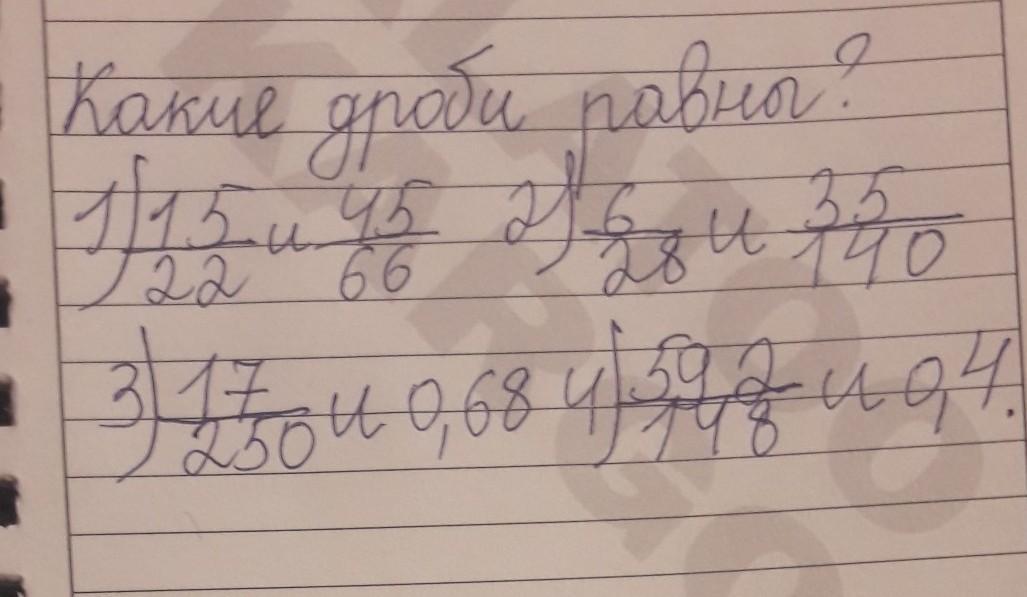 Какие дроби равны?
1) 15/22 и 45/66 2) 6/28 и 35/140
3) 17/250 и 0,68 4) 592/148 и 0,4.